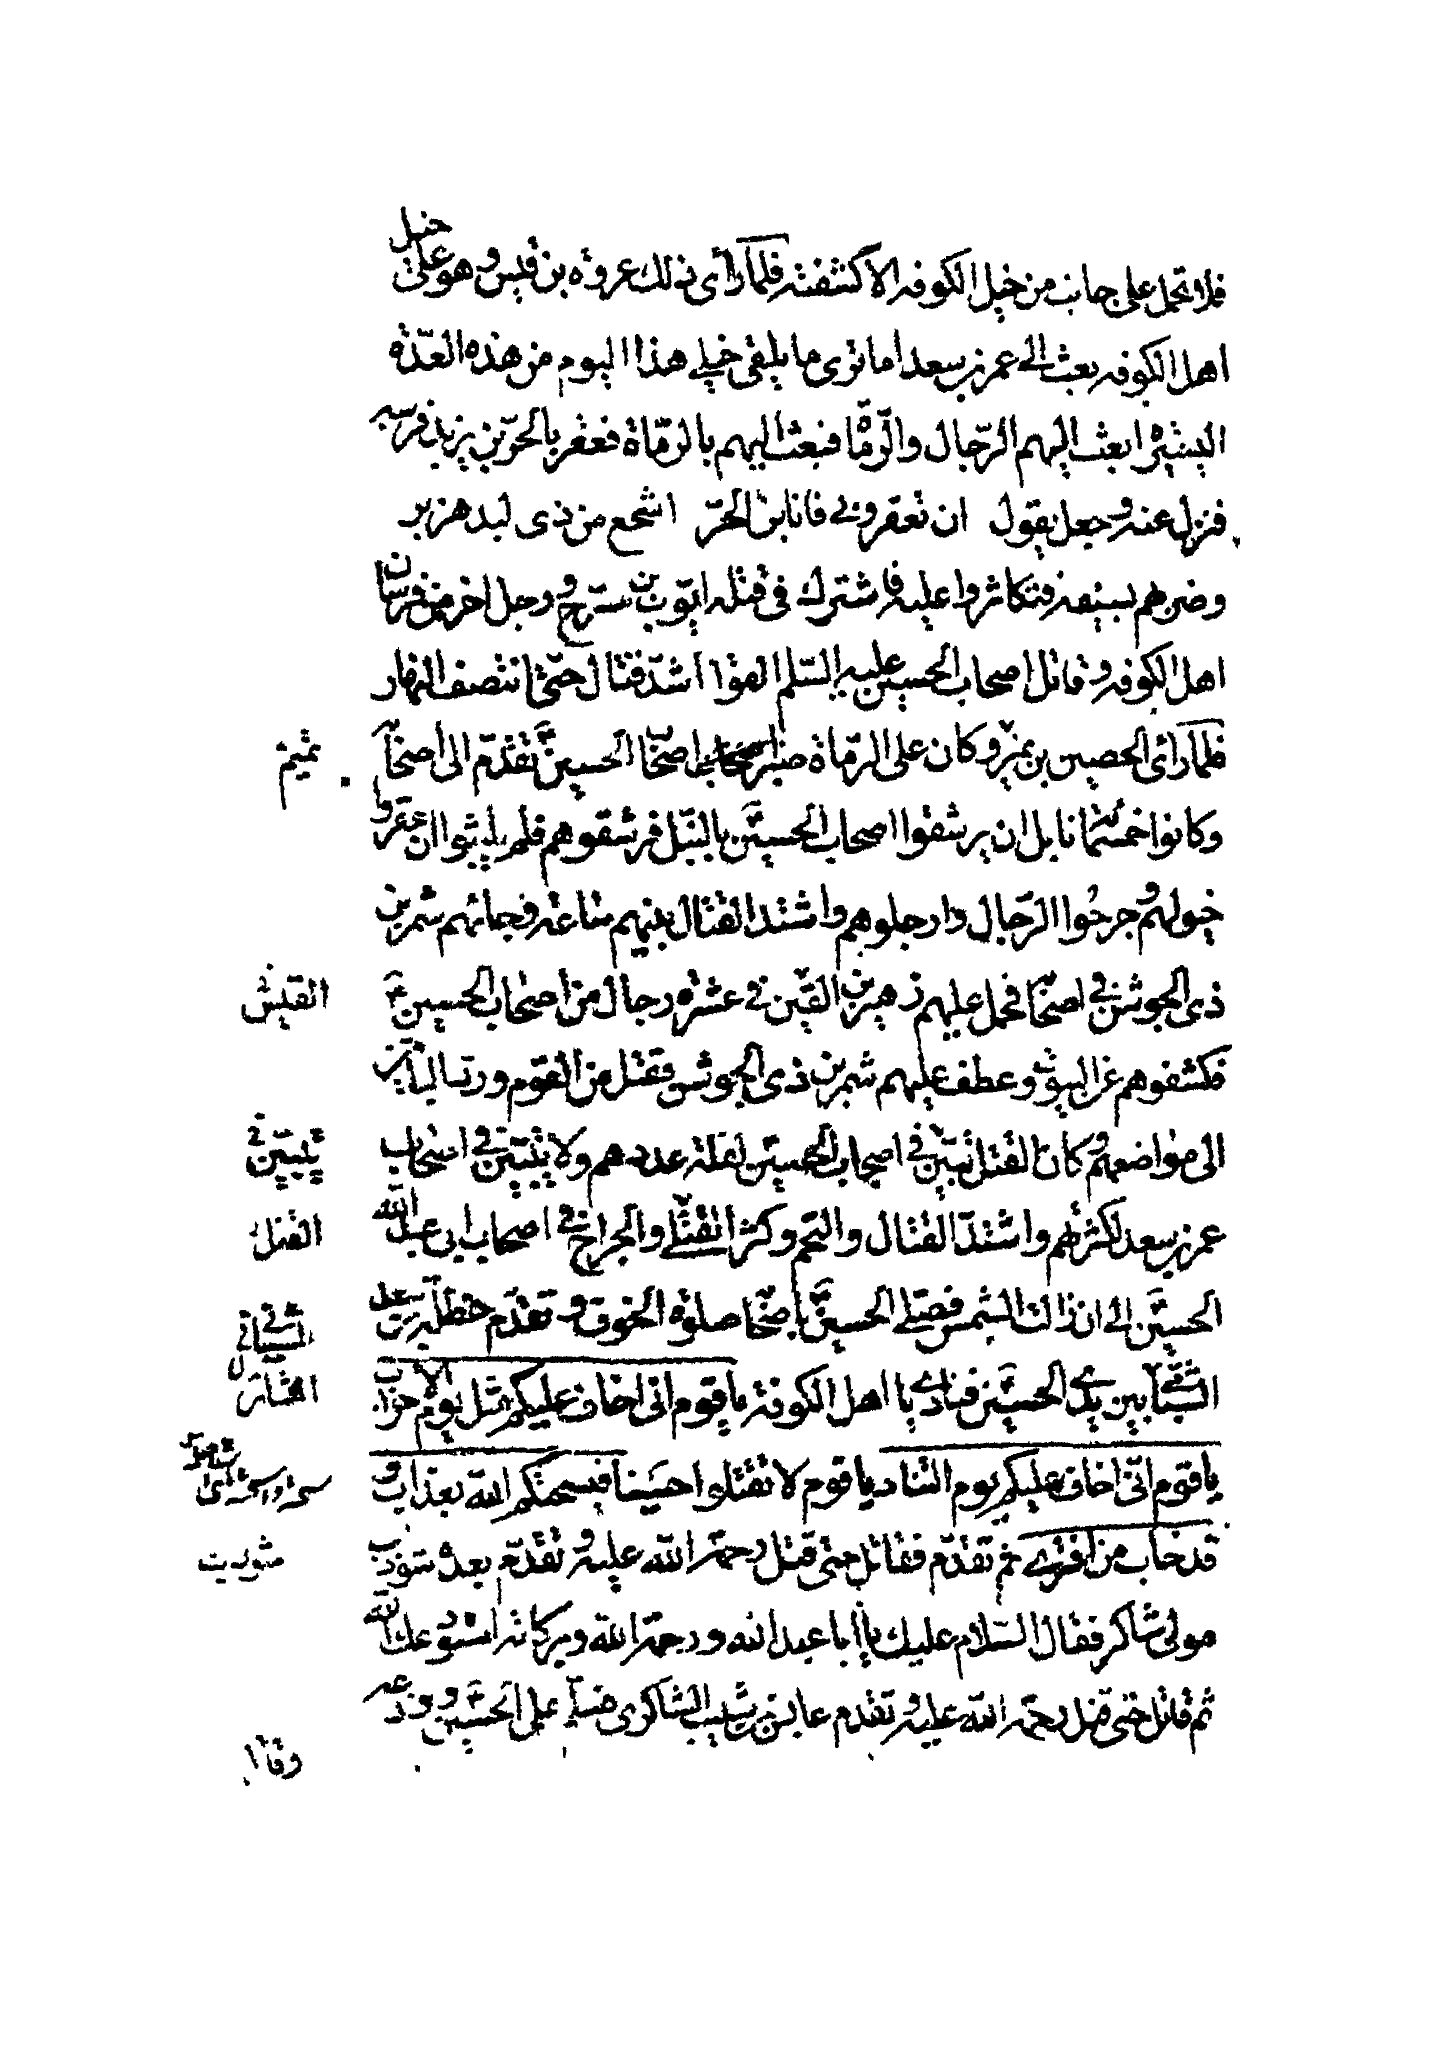 فلا تحمل على جانب من خيل الكوفه الا كشفته فلما رأى ذلك عروة بن قيس وهو على خيل
اهل الكوفه بعث الى عمر بن سعد اما ترى ما يلقى خيلي هذا اليوم من هذه العدّة
اليسيرة ابعث اليهم الرّجال والرّماة فبعث اليهم بالرّماة فعقر بالحرّ بن يزيد فرسه
فنزل عنه وجعل يقول ان تعقروني فانا بن الحرّ اشجع من ذى لبد هزبر
وضربهم بسيفه فتكاثروا عليه فاشترك فى قتله ايّوب بن مسرّح ورجل اخر من فرسان
اهل الكوفه وقاتل اصحاب الحسين عليه السّلم القوم اشدّ قتال حتى انتصف النهار
فلما رأى الحصين بن نمير وكان على الرّماة صبر اصحاب الحسين ع تقدّم الى اصحابه
تميم
وكانوا خمسمائة نابل ان يرشقوا اصحاب الحسين ع بالنبل فرشقوهم فلم يلبثوا ان عقروا
خيولهم وجرحوا الرّجال وارجلوهم واشتد القتال بينهم ساعة فجائهم شمر بن
ذى الجوشن في اصحابه فحمل عليهم زهير بن القين في عشرة رجال من اصحاب الحسين ع
القيس
فكشفوهم عن البيوت وعطف عليهم شمر بن ذى الجوشن فقتل من القوم وردّ الباقين
الى مواضعهم وكان القتل تبين في اصحاب الحسين لقلة عددهم ولا يتبيّن في اصحاب
يتبيّن في
عمر بن سعد لكثرتهم واشتدّ القتال والتحم وكثر القتلى والجراح في اصحاب ابى عبد الله
القتل
الحسين ع الى ان زالت الشمس فصلى الحسين ع باصحابه صلوة الخوف وتقدّم حنظلة بن سعد
الشبامي بين يدى الحسين ع فنادى يا اهل الكوفة يا قوم انى اخاف عليكم مثل يوم الاحزاب
يا قوم انّى اخاف عليكم يوم التناد يا قوم لا تقتلوا حسينا فيسحتكم الله بعذاب و
قد خاب من افترى ثم تقدّم فقاتل حتى قتل رحمة الله عليه وتقدّم بعده شوذب
شوذب
مولى شاكر فقال السّلام عليك يا ابا عبد الله ورحمة الله وبركاته استودعك الله
ثم قاتل حتى قتل رحمة الله عليه وتقدم عابس بن شبيب الشاكرى فسلم على الحسين ع وودعه
وقاتل